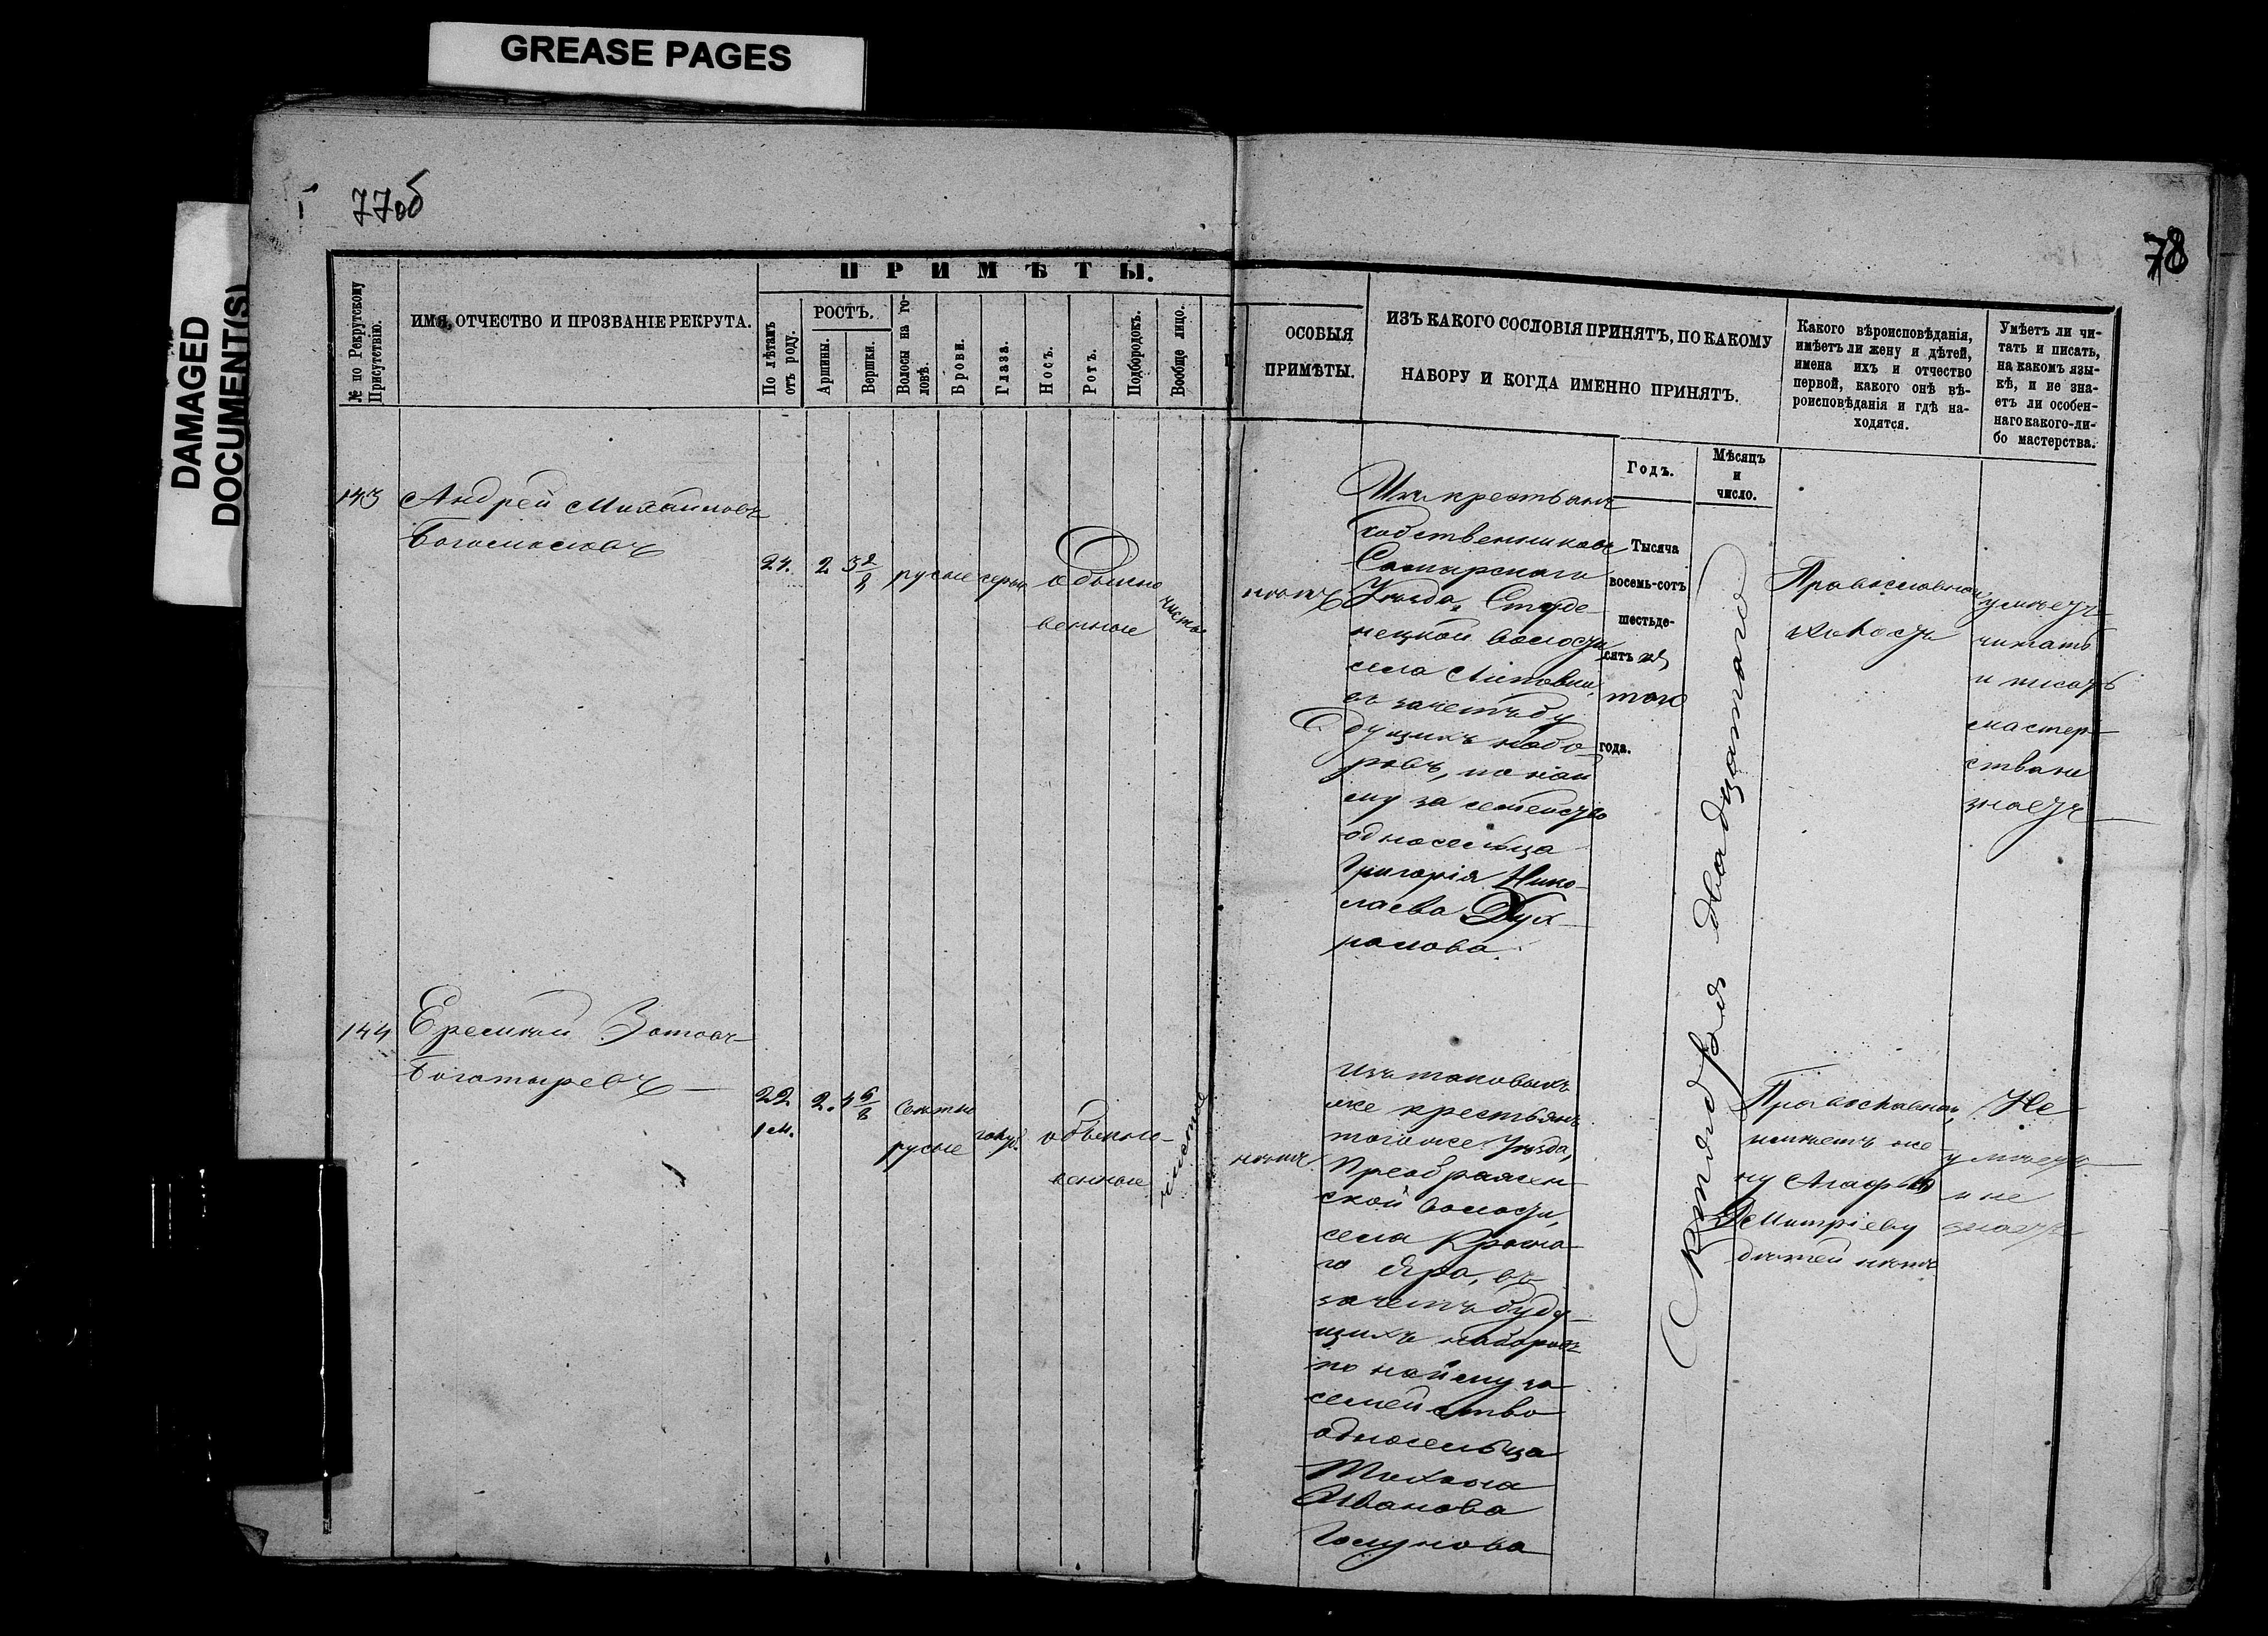 GREASE PAGES
DAMAGED
DOCUMENT(S)
77об
78
№ по Рекрутскому
Присутствію.
ИМЯ, ОТЧЕСТВО И ПРОЗВАНІЕ РЕКРУТА.
ПРИМѢТЫ.
По лѣтамъ
отъ роду.
РОСТЪ.
Аршины.
Вершки.
Волосы на го-
ловѣ.
Брови.
Глаза.
Носъ.
Ротъ.
Подбородокъ.
Вообще лицо.
ОСОБЫЯ
ПРИМѢТЫ.
ИЗЪ КАКОГО СОСЛОВІЯ ПРИНЯТЪ, ПО КАКОМУ
НАБОРУ И КОГДА ИМЕННО ПРИНЯТЪ.
Годъ.
Мѣсяцъ
и
число.
Какого вѣроисповѣданія,
имѣетъ ли жену и дѣтей,
имена ихъ и отчество
первой, какого онѣ вѣ-
роисповѣданія и гдѣ на-
ходятся.
Умѣетъ ли чи-
тать и писать,
на какомъ язы-
кѣ, и не зна-
етъ ли особен-
наго какого-ли-
бо мастерства.
143
Андрей Михайловъ
Богомоловъ
24. 2 3 2/8
русые серые
обыкно
венные
чистое
нѣтъ
Изъ крестьянъ
собственниковъ
Самарскаго
Уѣзда, Студе-
нецкой волости
села Липовки,
въ зачетъ бу
дущихъ набо
ровъ, по най
му за семейство
односельца
Григорія Нико-
лаева Дух
ранова.
Тысяча
восемь-сотъ
шестьде-
сятъ
того
года.
Октября двадцатаго
Православнаго
холостъ
умѣетъ
читать
и писать
мастер-
ства не
знаетъ
144
Еремѣй Зотовъ
Богатыревъ
22
1 м.
2. 4 6/8
свѣтло
русые
голуб.
обыкно-
венные
чистое
нѣтъ
изъ таковыхъ
же крестьянъ
того же Уѣзда,
Преображен-
ской волости,
села Красна-
го Яра, въ
зачетъ буду-
щихъ наборовъ
по найму за
семейство
односельца
Ивакова
Голунова
Православнаго,
имѣетъ же
ну Агафью
Дмитріеву
дѣтей нѣтъ
Не
умѣетъ
и не
знаетъ